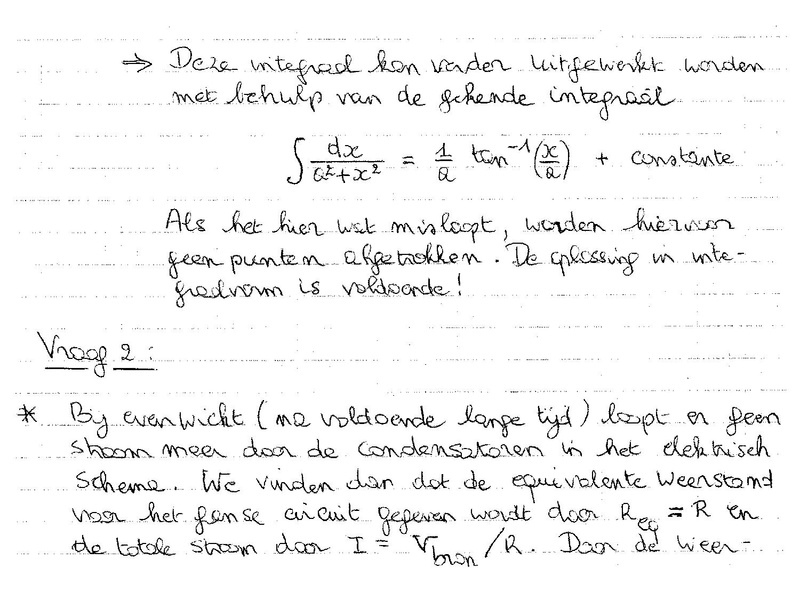 ⇒ Deze integraal kan verder uitgewerkt worden
met behulp van de gekende integraal
∫ dx/(a²+x²) = 1/a tan⁻¹(x/a) + constante
Als het hier wat misloopt, worden hiervoor
geen punten afgetrokken. De oplossing in inte-
graalvorm is voldoende!
Vraag 2:
* Bij evenwicht (na voldoende lange tijd) loopt er geen
stroom meer door de condensatoren in het elektrisch
schema. We vinden dan dat de equivalente weerstand
voor het ganse circuit gegeven wordt door R_eq = R en
de totale stroom door I = V_bron/R. Door de weer-